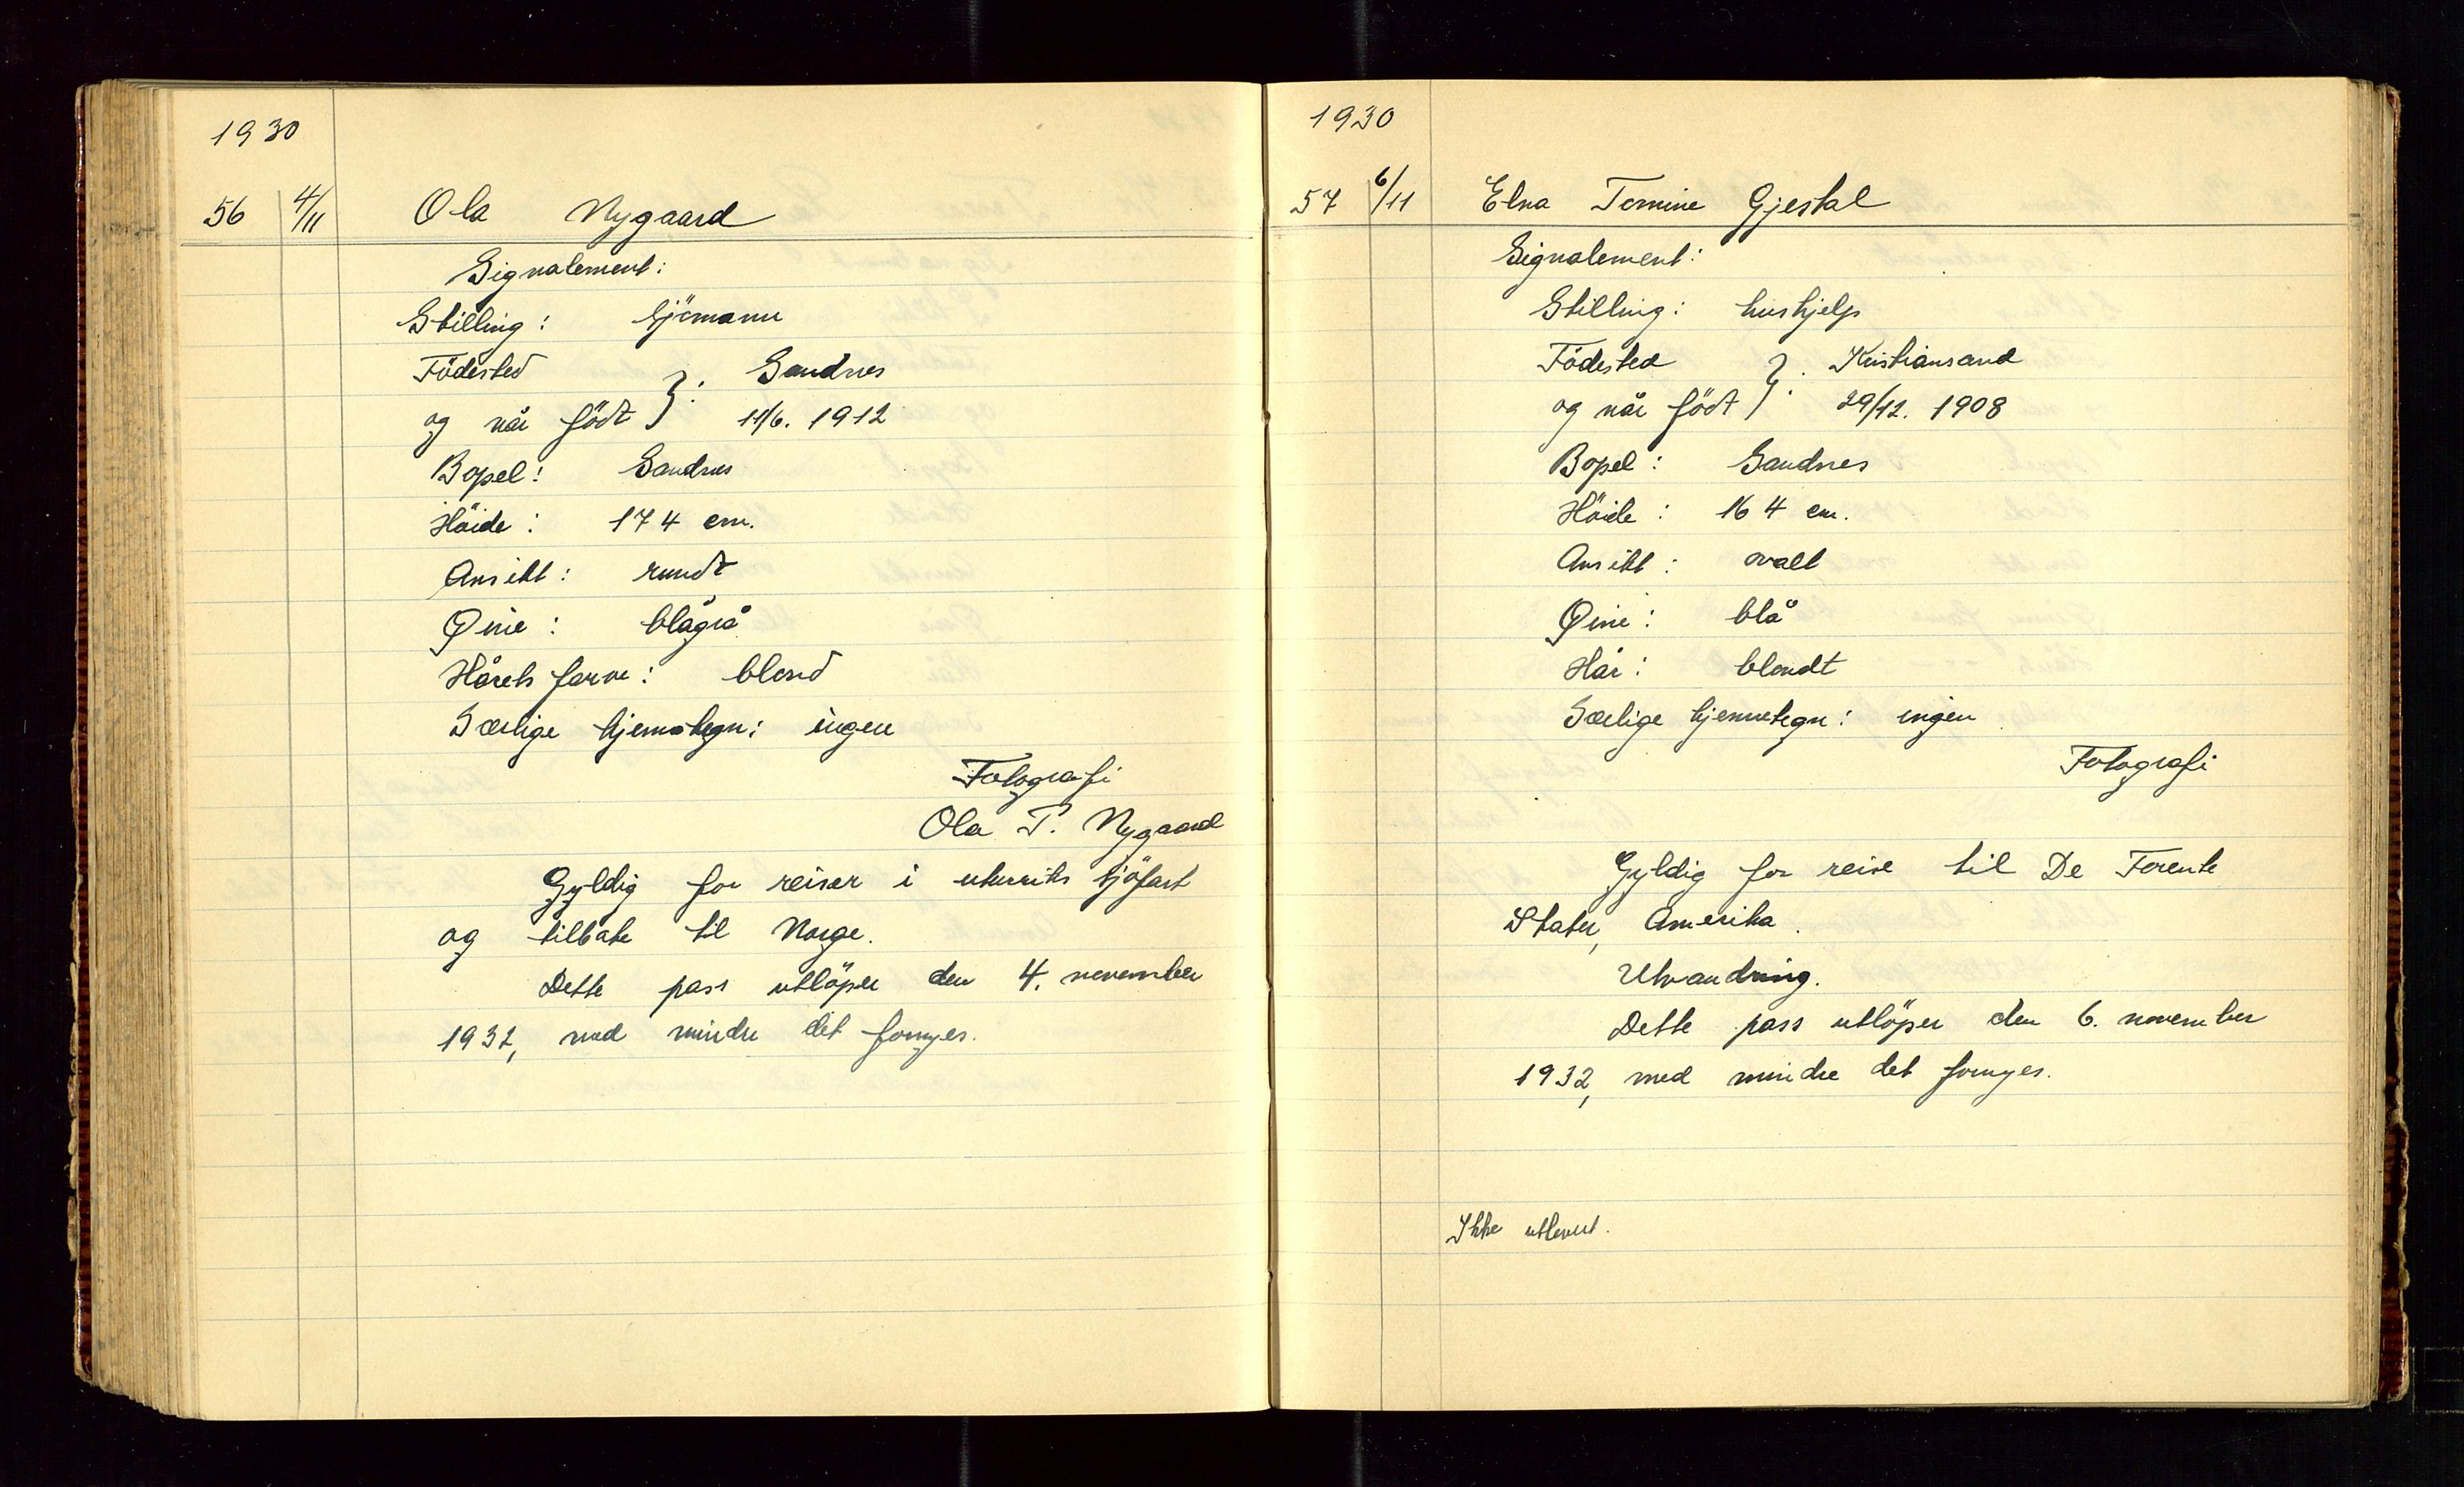 1930
56 4/11 Ola Nygaard
Signalement:
Stilling: Sjömann
Födested
og når födt }: Sandnes
11/6. 1912
Bopel: Sandnes
Höide: 174 cm.
Ansikt: rundt
Øine: blågrå
Hårets farve: blond
Særlige kjennetegn: ingen
Fotografi
Ola T. Nygaard
Gyldig for reiser i utenriks sjöfart
og tilbake til Norge.
Dette pass utlöper den 4. november
1932, med mindre det fornyes.
1930
57 6/11 Elna Tomine Gjestal
Signalement:
Stilling: hushjelp
Födested
og når födt }: Kristiansand
29/12. 1908
Bopel: Sandnes
Höide: 164 cm.
Ansikt: ovalt
Øine: blå
Hår: blondt
Særlige kjennetegn: ingen
Fotografi
Gyldig for reise til De Forente
Stater, Amerika.
Utvandring.
Dette pass utlöper den 6. november
1932, med mindre det fornyes.
Ikke utlevert.